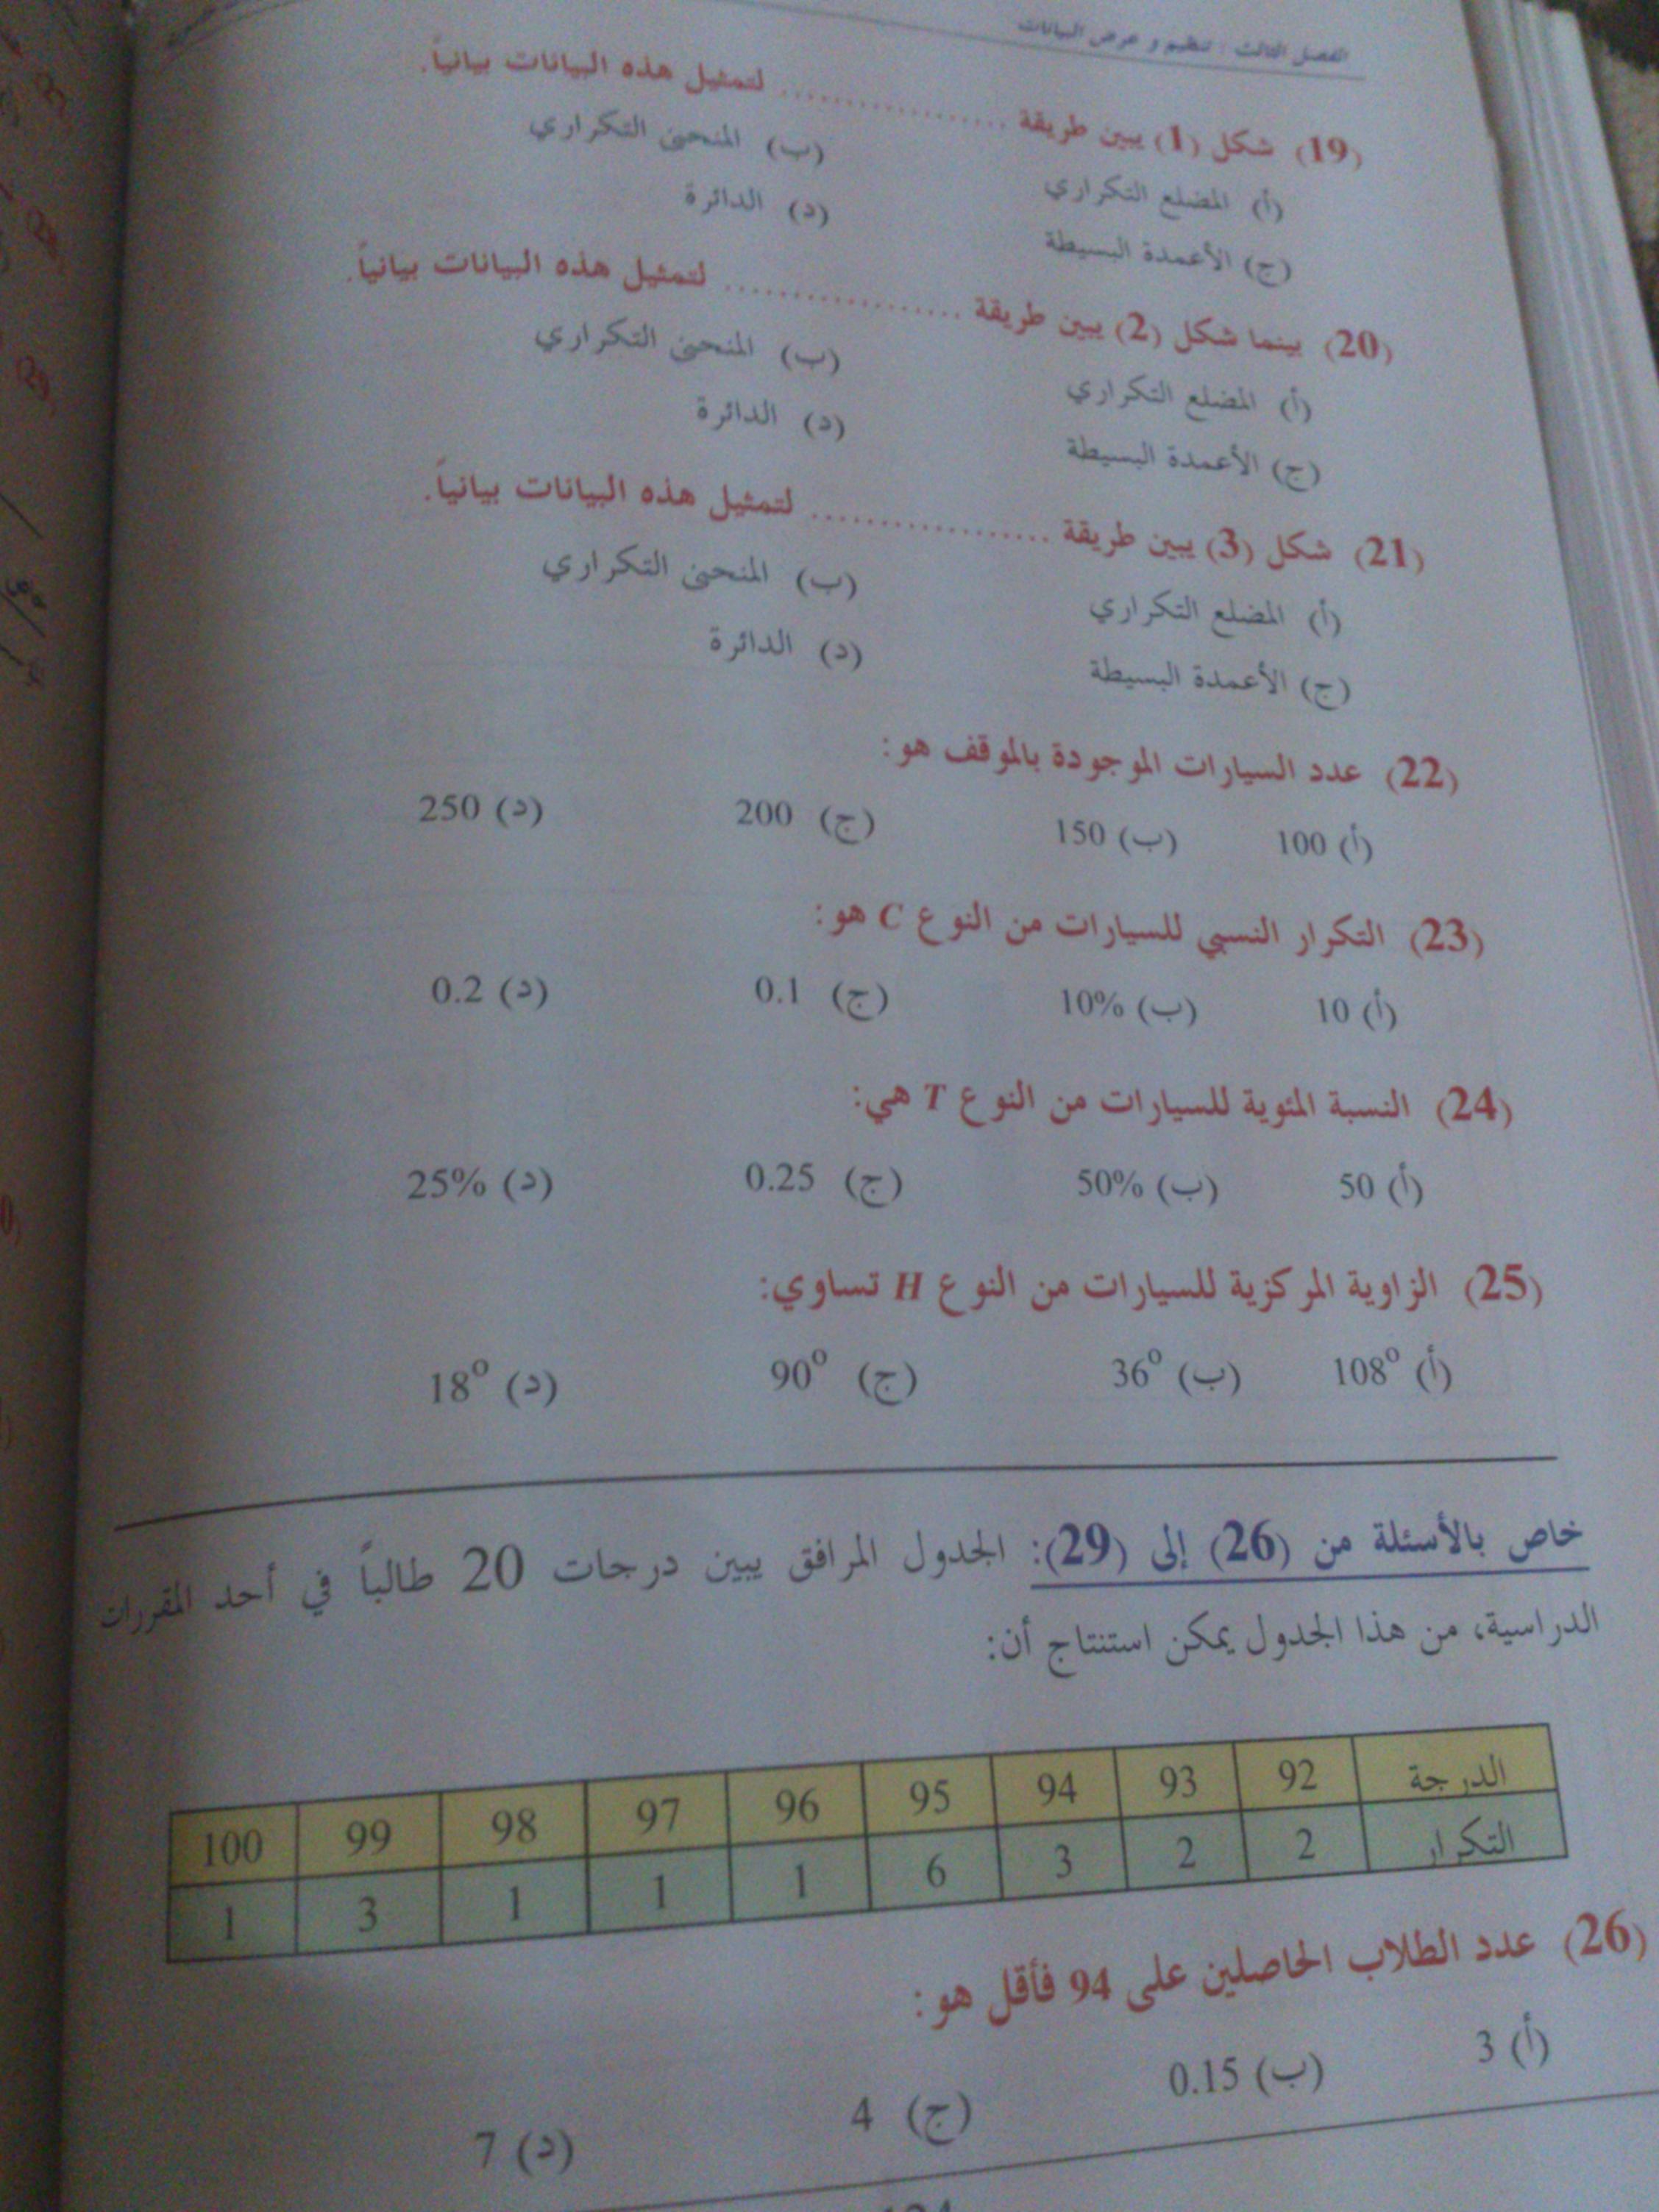 الفصل الثالث : تنظيم و عرض البيانات
(19) شكل (1) يبين طريقة .................. لتمثيل هذه البيانات بيانياً.
(أ) المضلع التكراري (ب) المنحنى التكراري
(ج) الأعمدة البسيطة (د) الدائرة
(20) بينما شكل (2) يبين طريقة .................. لتمثيل هذه البيانات بيانياً.
(أ) المضلع التكراري (ب) المنحنى التكراري
(ج) الأعمدة البسيطة (د) الدائرة
(21) شكل (3) يبين طريقة .................. لتمثيل هذه البيانات بيانياً.
(أ) المضلع التكراري (ب) المنحنى التكراري
(ج) الأعمدة البسيطة (د) الدائرة
(22) عدد السيارات الموجودة بالموقف هو:
(أ) 100 (ب) 150 (ج) 200 (د) 250
(23) التكرار النسبي للسيارات من النوع C هو:
(أ) 10 (ب) 10% (ج) 0.1 (د) 0.2
(24) النسبة المئوية للسيارات من النوع T هي:
(أ) 50 (ب) 50% (ج) 0.25 (د) 25%
(25) الزاوية المركزية للسيارات من النوع H تساوي:
(أ) 108° (ب) 36° (ج) 90° (د) 18°
خاص بالأسئلة من (26) إلى (29): الجدول المرافق يبين درجات 20 طالباً في أحد المقررات
الدراسية، من هذا الجدول يمكن استنتاج أن:
الدرجة 92 93 94 95 96 97 98 99 100
التكرار 2 2 3 6 1 1 1 3 1
(26) عدد الطلاب الحاصلين على 94 فأقل هو:
(أ) 3 (ب) 0.15 (ج) 4 (د) 7